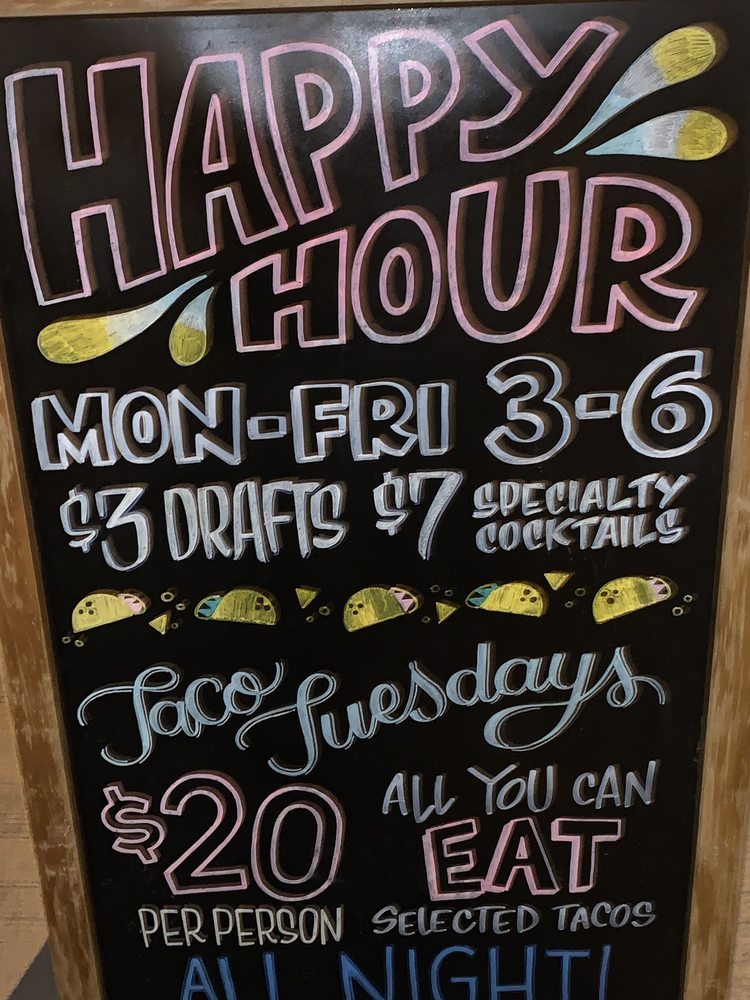 HAPPY
HOUR
MON-FRI 3-6
$3 DRAFTS $7 SPECIALTY COCKTAILS
Taco Tuesdays
$20 ALL YOU CAN EAT
PER PERSON SELECTED TACOS
ALL NIGHT!